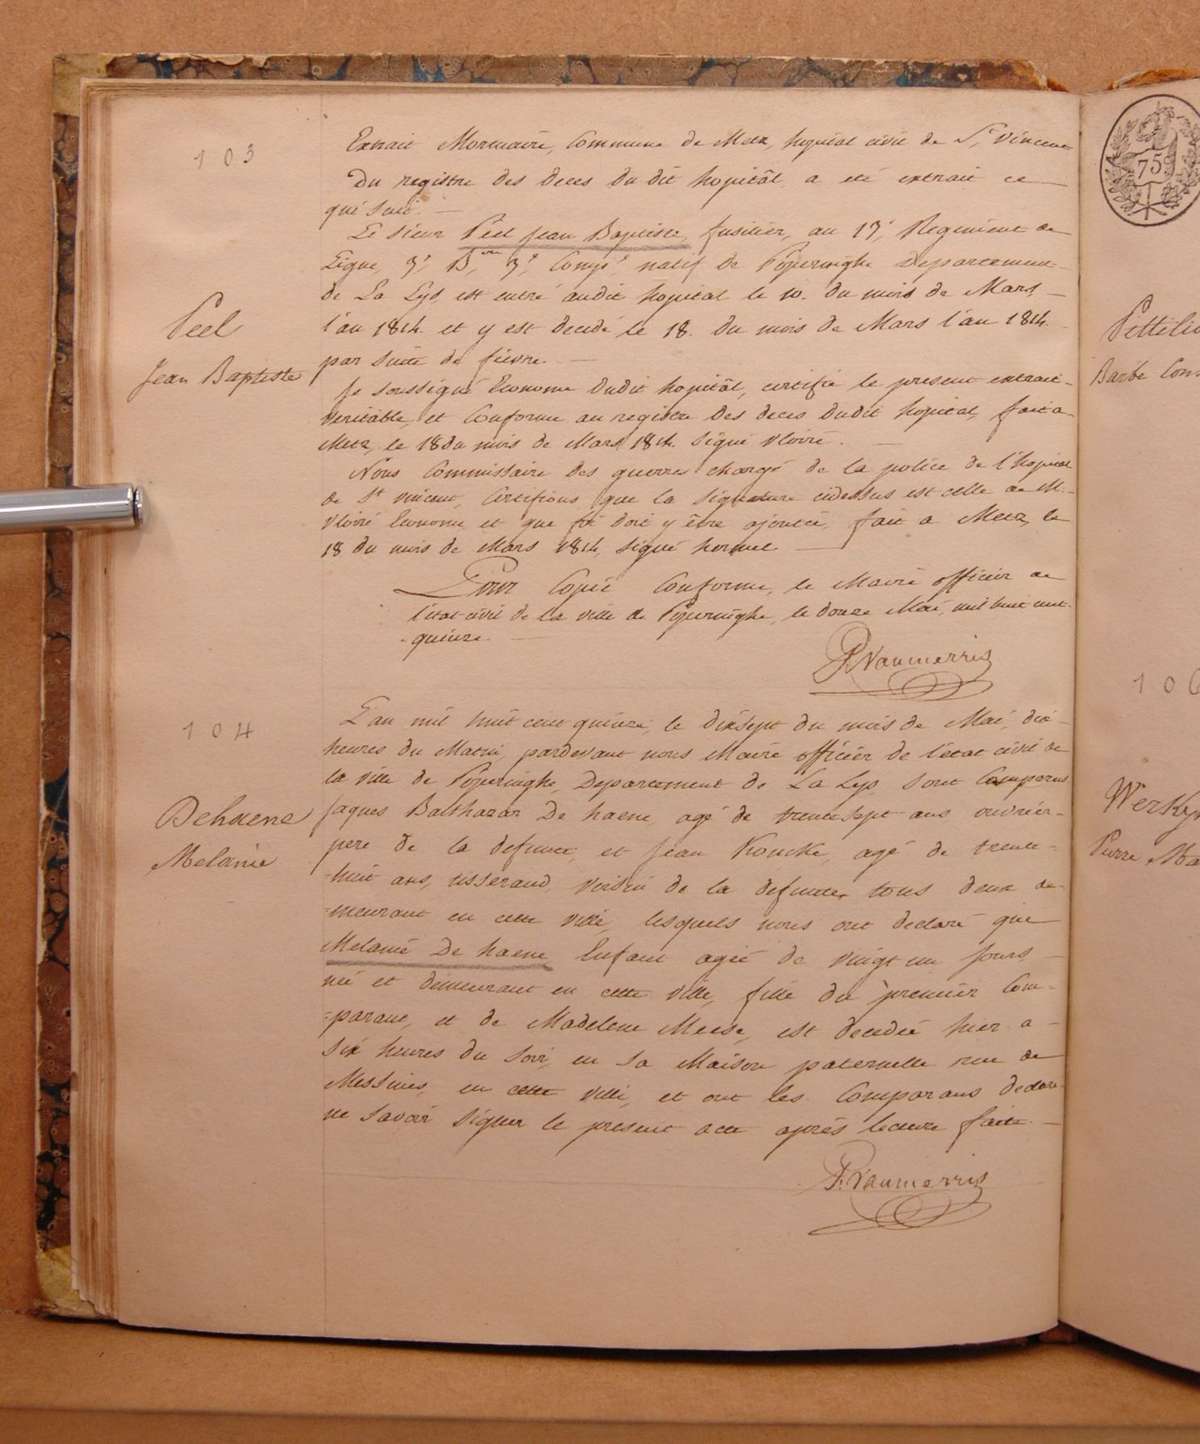 103
Extrait Mortuaire, Commune de Metz, hopital civil de St Vincent
Du registre des deces du dit hopitâl a eté extrait ce
qui suit. —
Le sieur Péel Jean Baptiste, fusilier, au 17e Regiment de
Ligne, 3e B.on 3e Compe natif de Poperinghe Departement
de La Lys, est entré audit hopital le 10. du mois de Mars,
l'an 1814 et y est decedé le 18. du mois de Mars l'an 1814
par suite de fièvre. —
Peel
Jean Baptiste
Je soussigné Econome dudit hopitâl, certifie le present extrait
veritable, et Conforme au registre des deces dudit hopital, fait a
Metz, le 18 du mois de Mars 1814. signé
Nous Commissaire des guerres chargé de la police de l'hopital
de St Vincent, Certifions que la signature cidessus est celle de M.
Econome et que foi doit y être ajoutée, fait a Metz, le
18 du mois de Mars 1814, signé
Pour Copie Conforme, le Maire officier de
l'état civil de la ville de Poperinghe, le douze Mai, mil huit cent
quinze. —
P. Vanmerris
104
L'an mil huit cent quinze, le dixsept du mois de Mai, dix
heures du Matin, pardevant nous Maire officier de l'état civil de
la ville de Poperinghe, Departement de La Lys sont Comparus
Jaques Balthazar De haene, agé de trente sept ans ouvrier
pere de la defunte, et Jean Koucke, agé de trente-
huit ans, tisserand, voisin de la defunte, tous deux de-
meurant en cette ville, lesquels nous ont declaré que
Dehaene
Melanie
Melanie De haene Enfant agée de vingt un jours
née et demeurant en cette ville, fille du premier Com-
parant, et de Madelene Meese, est decedée hier a
six heures du soir, en sa Maison paternelle rue de
Messines, en cette ville, et ont les Comparans declaré
ne savoir signer le present acte après lecture faite. —
P. Vanmerris
75
Barbe
106
Pierre